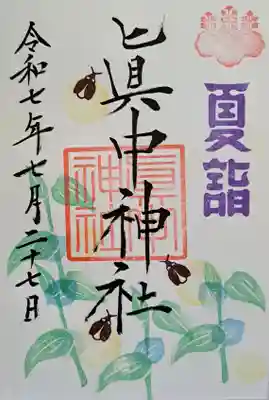 夏詣
眞中神社
令和七年七月二十七日